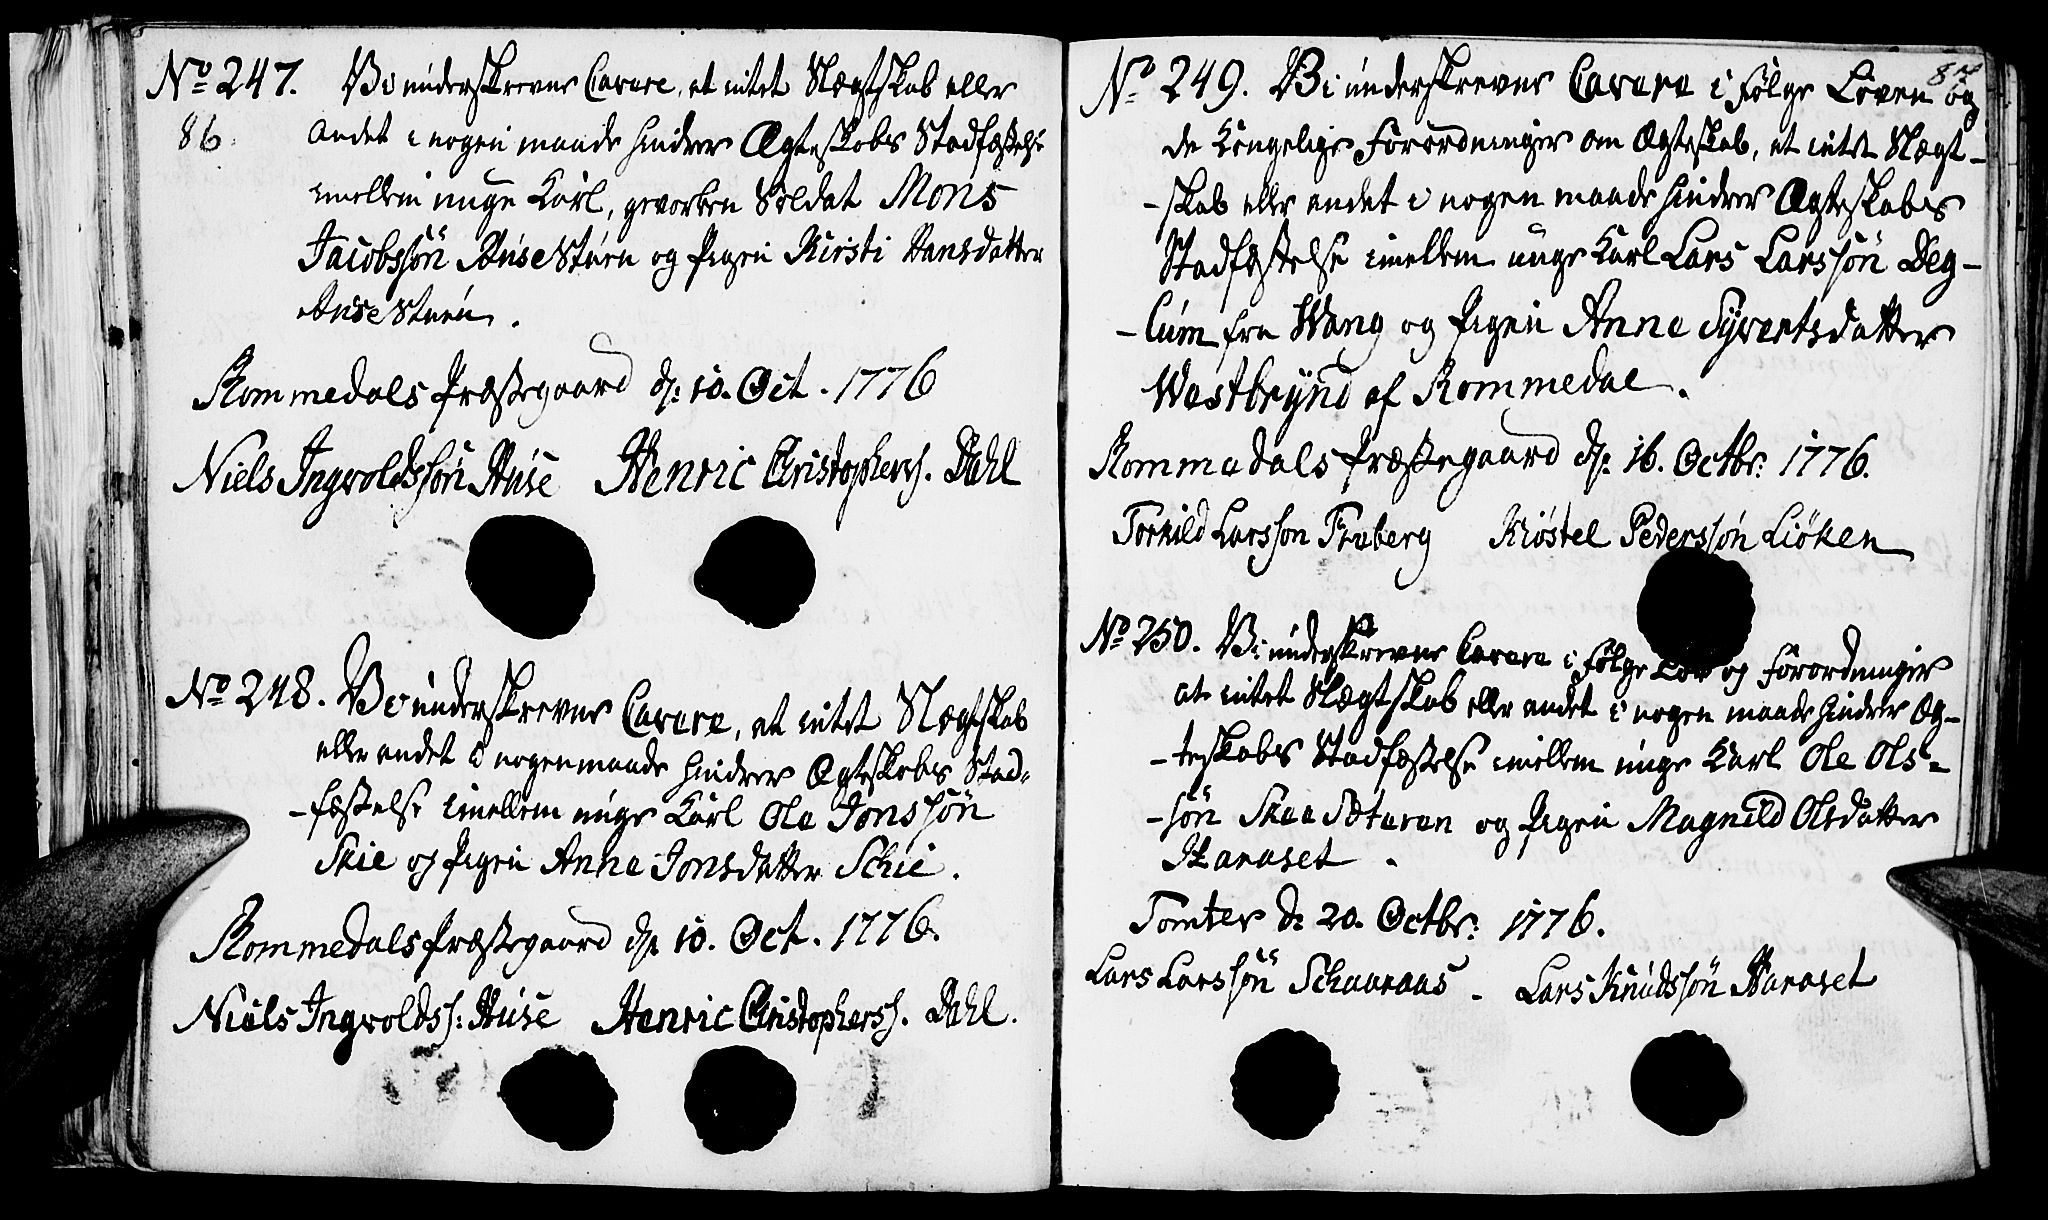 No 247. Vi underskrevne Cavere, at intet Slægtskab eller
86
andet i nogen maade hindrer Ægteskabs Stadfæstelse
imellem unge Karl, gevorben Soldat Mons
Jacobssøn Aúsestúen og Pigen Kirsti Hansdatter
Aúsestúen.
Rommedals Præstegaard d: 10. Oct. 1776
Niels Ingvoldssøn Húse Henric Christophers. Dahl
No 248. Vi underskrevne Cavere, at intet Slægtskab
eller andet i nogen maade hindrer Ægteskabs Stad-
-fæstelse imellem unge Karl Ole Jonssøn
Skie og Pigen Anne Jonsdatter Schie.
Rommedals Præstegaard d: 10. Oct. 1776.
Niels Ingvoldss: Húse Henric Christophers. Dahl.
87
No 249. Vi underskrevne Cavere i følge Loven og
de Kongelige Forordninger om Ægteskab, at intet Slægt-
-skab eller andet i nogen maade hindrer Ægteskabs
Stadfæstelse imellem unge Karl Lars Larssøn Deg-
-lúm fra Wang og Pigen Anne Syvertsdatter
Westbrynd af Rommedal.
Rommedals Præstegaard d: 16. Octbr: 1776.
Torkild Larsson Kiøstel Pederssøn Liøken
No 250. Vi underskrevne Cavere i følge Lov og Forordninger
at intet Slægtskab eller andet i nogen maade hindrer Æg-
-teskabs Stadfæstelse imellem unge Karl Ole Ols-
-søn Skaa Sæteren og Pigen Magnild Olsdatter
Haraset.
Tomter d: 20. Octbr: 1776.
Lars Larssøn Schaaraas. Lars Knúdssøn Haraset